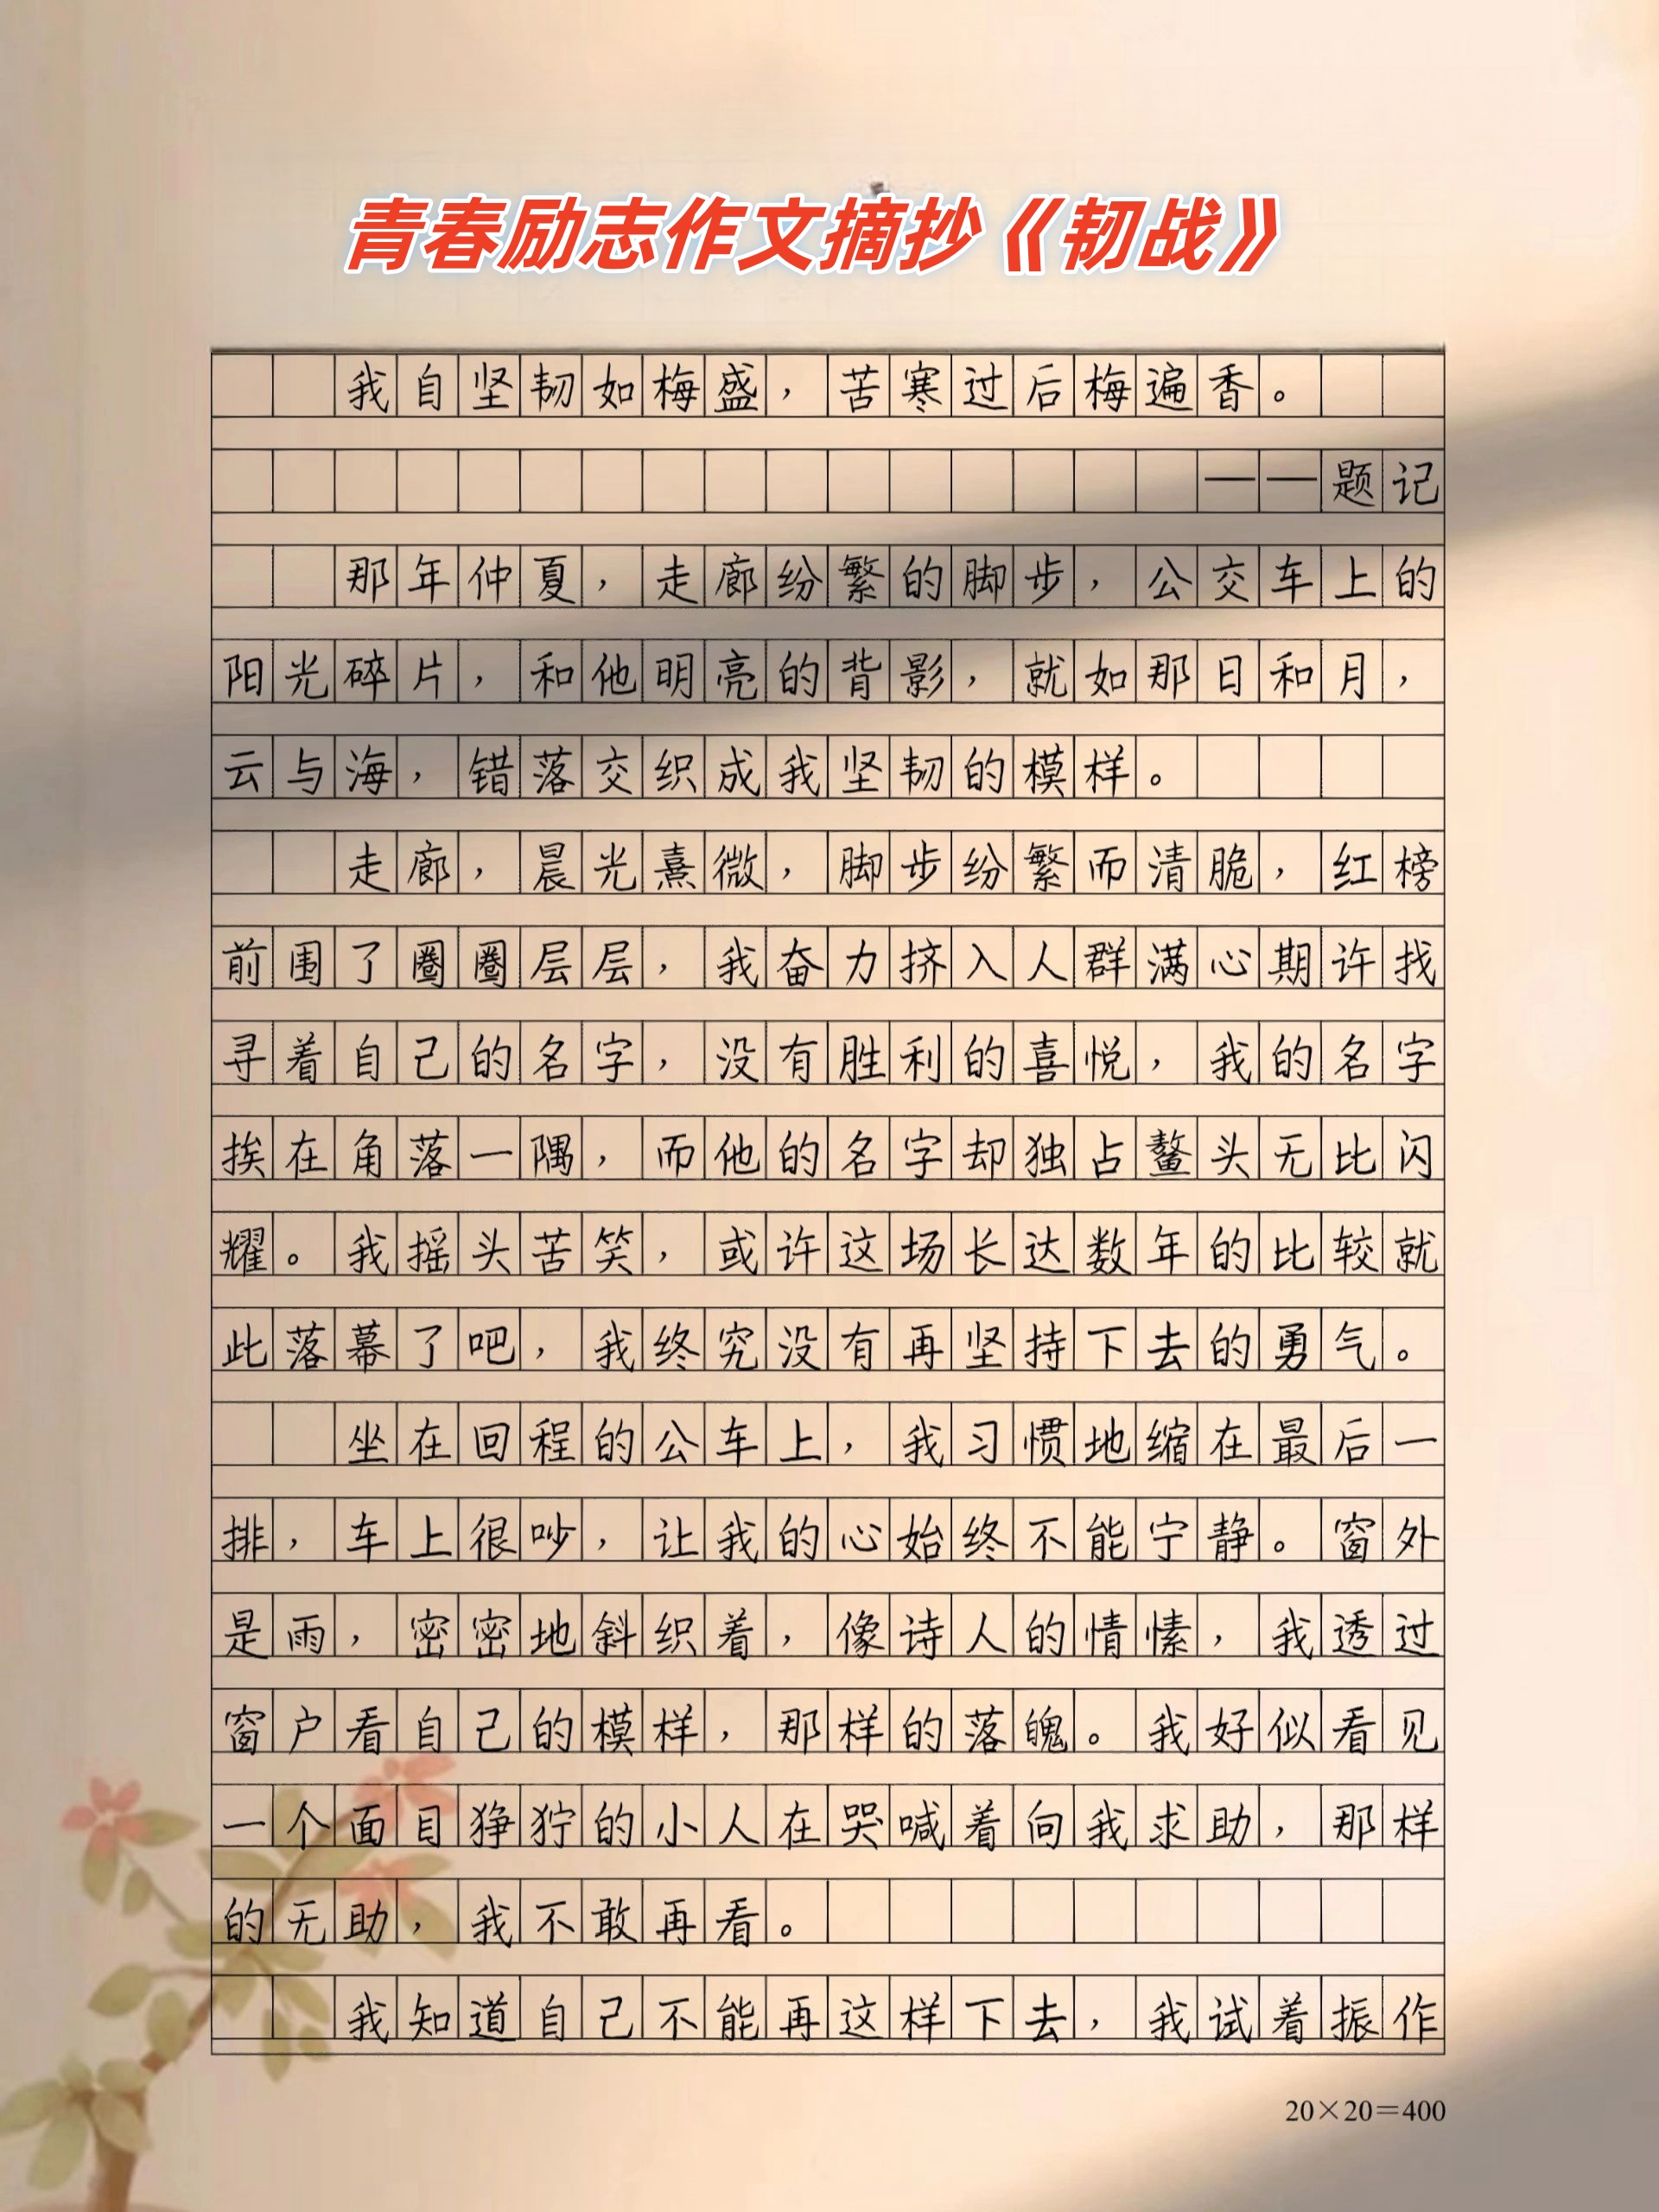 青春励志作文摘抄《韧战》
我自坚韧如梅盛，苦寒过后梅遍香。
——题记
那年仲夏，走廊纷繁的脚步，公交车上的
阳光碎片，和他明亮的背影，就如那日和月，
云与海，错落交织成我坚韧的模样。
走廊，晨光熹微，脚步纷繁而清脆，红榜
前围了圈圈层层，我奋力挤入人群满心期许找
寻着自己的名字，没有胜利的喜悦，我的名字
挨在角落一隅，而他的名字却独占鳌头无比闪
耀。我摇头苦笑，或许这场长达数年的比较就
此落幕了吧，我终究没有再坚持下去的勇气。
坐在回程的公车上，我习惯地缩在最后一
排，车上很吵，让我的心始终不能宁静。窗外
是雨，密密地斜织着，像诗人的情愫，我透过
窗户看自己的模样，那样的落魄。我好似看见
一个面目狰狞的小人在哭喊着向我求助，那样
的无助，我不敢再看。
我知道自己不能再这样下去，我试着振作
20×20=400